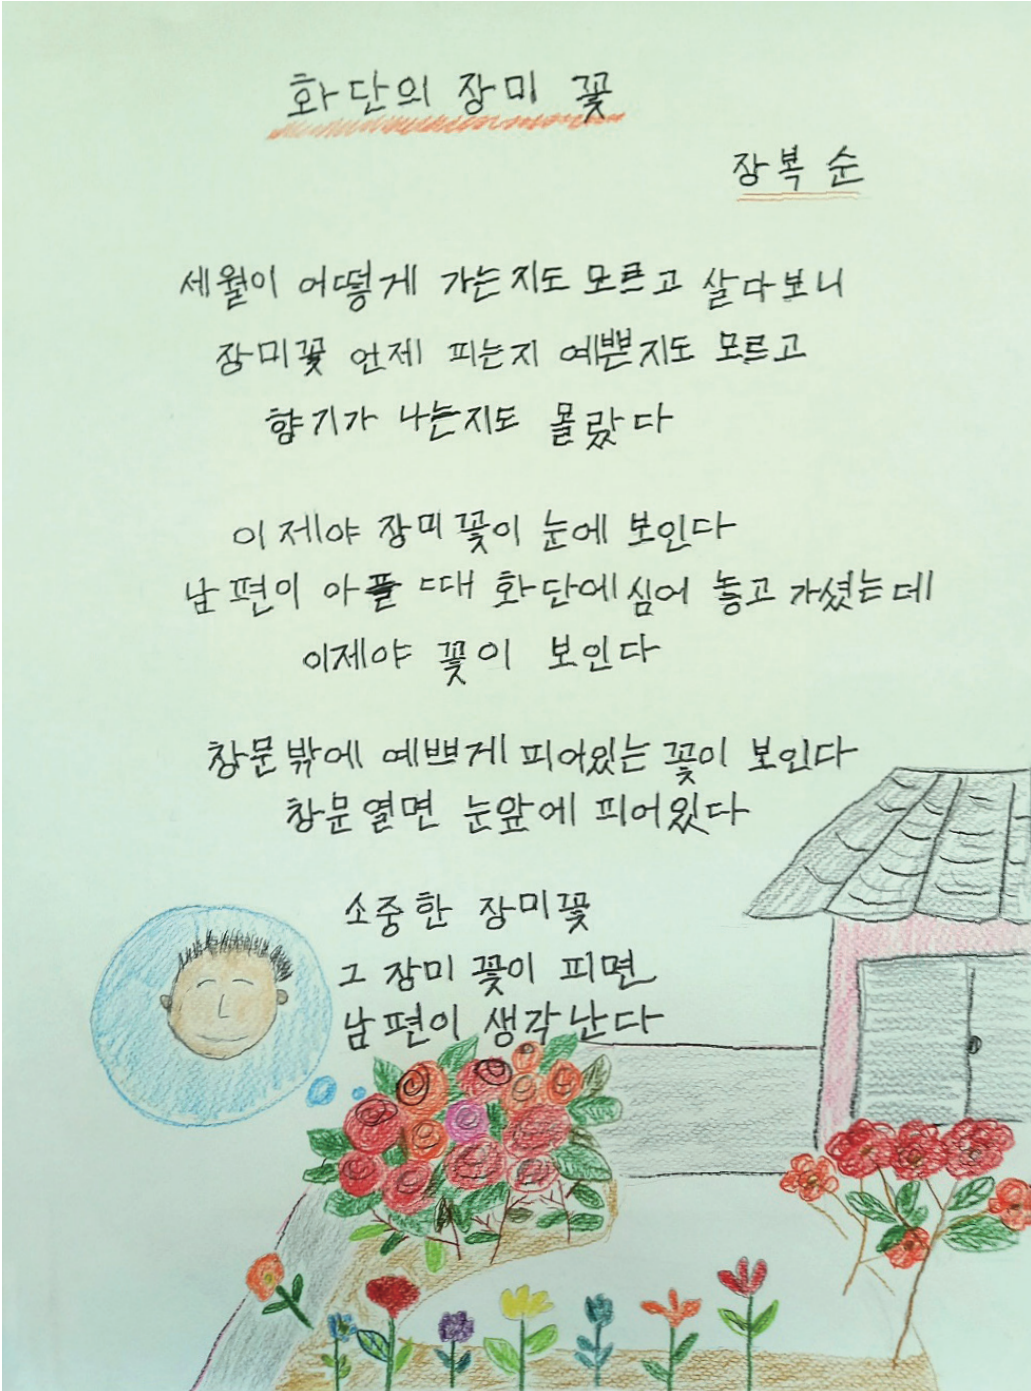 화단의 장미 꽃
장복순
세월이 어떻게 가는지도 모르고 살다보니
장미꽃 언제 피는지 예쁜지도 모르고
향기가 나는지도 몰랐다
이제야 장미꽃이 눈에 보인다
남편이 아플 때 화단에 심어 놓고 가셨는데
이제야 꽃이 보인다
창문밖에 예쁘게 피어있는 꽃이 보인다
창문열면 눈앞에 피어있다
소중한 장미꽃
그 장미 꽃이 피면
남편이 생각난다